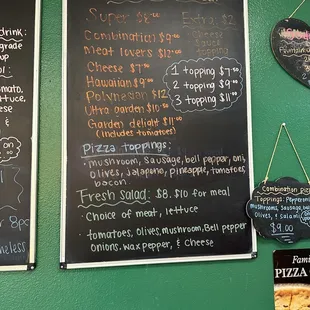 drink:
grade
up
omato,
ettuce,
ese
&
on
8pc
neless
Super $8.00
Extra: $2
Combination $9.00
Cheese
Sauce
topping
Meat lovers $12.00
Cheese $7.00
Hawaiian $9.00
Polynesian $12
Ultra garden $10.00
Garden delight $11.00
(includes tomatoes)
1 topping $7.00
2 topping $9.00
3 topping $11.00
Pizza toppings:
• mushroom, Sausage, bell pepper, oni
Olives, Jalapeno, pineapple, tomatoes,
bacon
Fresh Salad: $8. $10 for meal
• Choice of meat, lettuce
• tomatoes, Olives, mushroom, Bell pepper
Onions. wax pepper, & cheese
Combination pizz
Toppings: Pepperoni
Mushrooms, Sausage, bel
Olives, & salami
$9.00
Fami
PIZZA